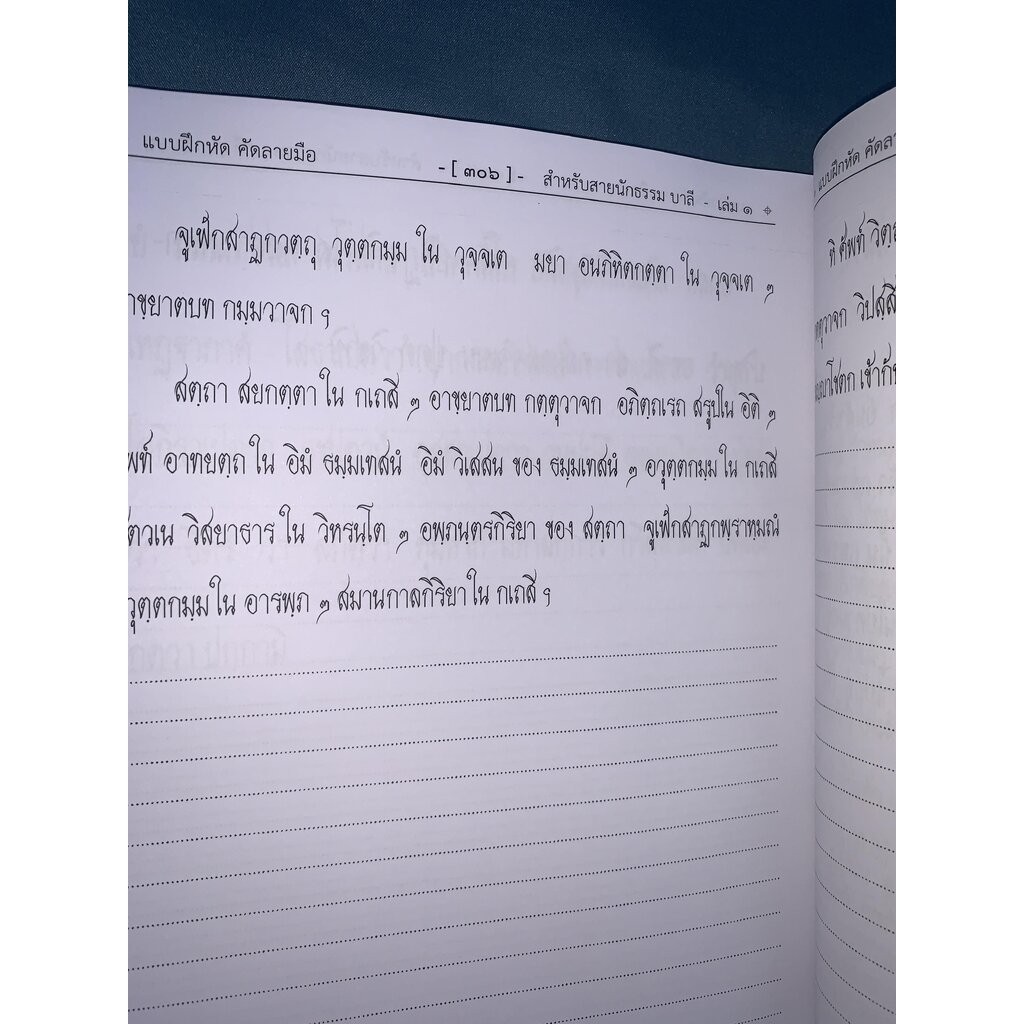 แบบฝึกหัด คัดลายมือ -[ ๓๐๖ ]- สำหรับสายนักธรรม บาลี - เล่ม ๑
จูเฬกสาฏกวตฺถุ วุตฺตกมฺม ใน วุจฺจเต มยา อนภิหิตกตฺตา ใน วุจฺจเต ๆ
าขฺยาตบท กมฺมวาจก ฯ
สตฺถา สยกตฺตา ใน กเถสิ ๆ อาขฺยาตบท กตฺตุวาจก อภิตฺถเรถ สรูปใน อิติ ๆ
พท์ อาทยตฺถ ใน อิมํ ธมฺมเทสนํ อิมํ วิเสสน ของ ธมฺมเทสนํ ๆ อวุตฺตกมฺม ใน กเถสิ
ตวเน วิสยาธาร ใน วิหรนฺโต ๆ อพฺภนฺตรกิริยา ของ สตฺถา จูเฬกสาฏกพฺราหฺมณํ
วุตฺตกมฺม ใน อารพฺภ ๆ สมานกาลกิริยา ใน กเถสิ ฯ
แบบฝึกหัด คัดลา
ทิ ศัพท์
ตุวาจก วิปสฺสี
โชตก เข้ากับ